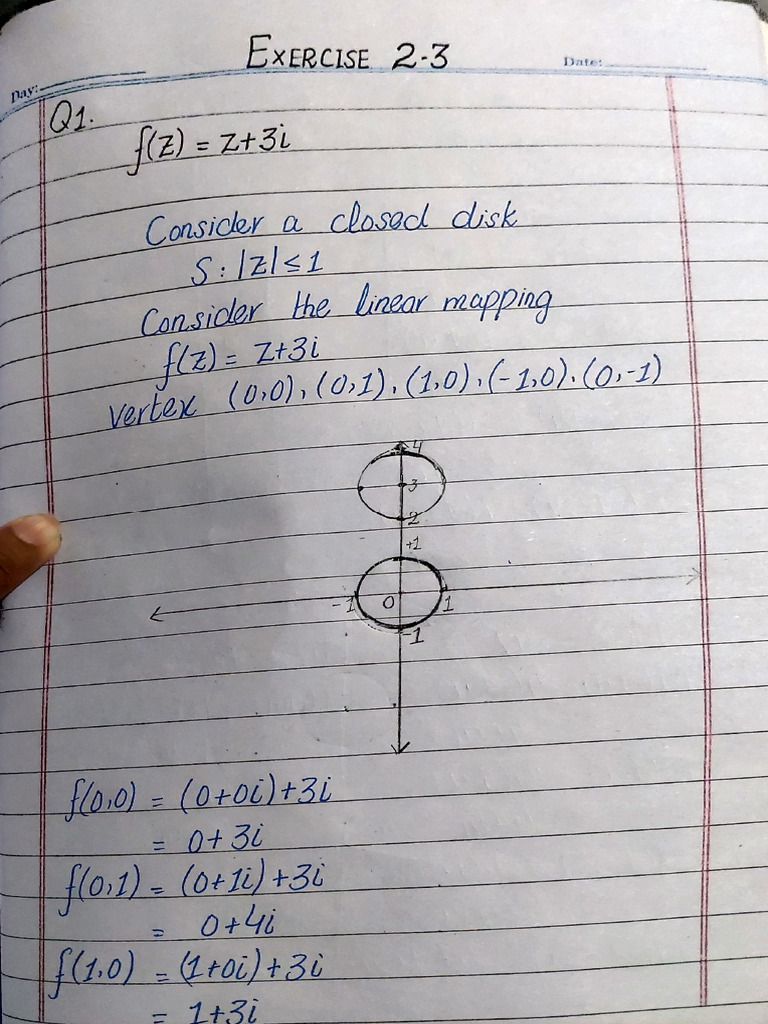 EXERCISE 2-3
Day:
Date:
Q1.
f(z) = z+3i
Consider a closed disk
S: |z| ≤ 1
Consider the linear mapping
f(z) = z+3i
vertex (0,0), (0,1), (1,0), (-1,0), (0,-1)
4
3
2
+1
-1 0 1
-1
f(0,0) = (0+0i)+3i
= 0+3i
f(0,1) = (0+1i)+3i
= 0+4i
f(1,0) = (1+0i)+3i
= 1+3i